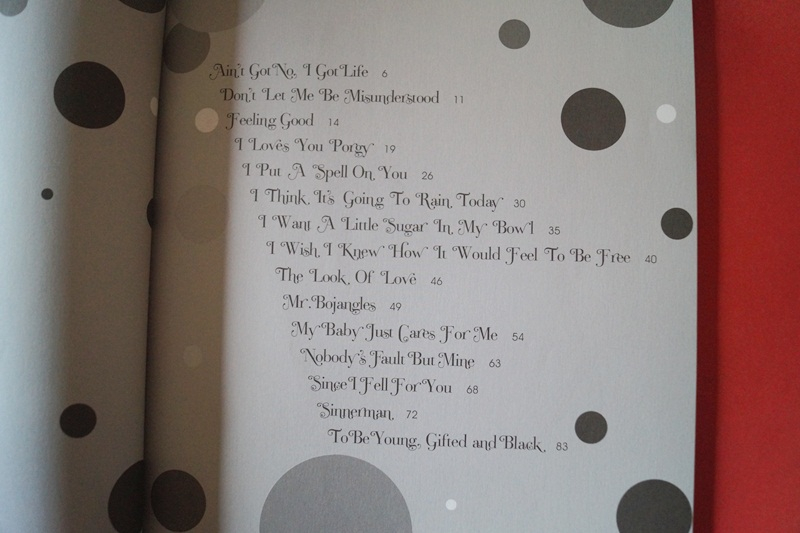 Ain't Got No, I Got Life 6
Don't Let Me Be Misunderstood 11
Feeling Good 14
I Loves You Porgy 19
I Put A Spell On You 26
I Think It's Going To Rain Today 30
I Want A Little Sugar In My Bowl 35
I Wish I Knew How It Would Feel To Be Free 40
The Look Of Love 46
Mr. Bojangles 49
My Baby Just Cares For Me 54
Nobody's Fault But Mine 63
Since I Fell For You 68
Sinnerman 72
To Be Young, Gifted and Black 83